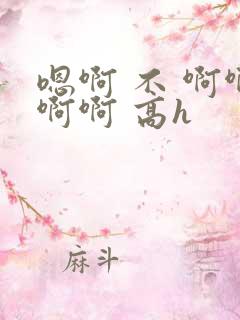 嗯啊 不 啊啊
啊啊 高h
麻斗